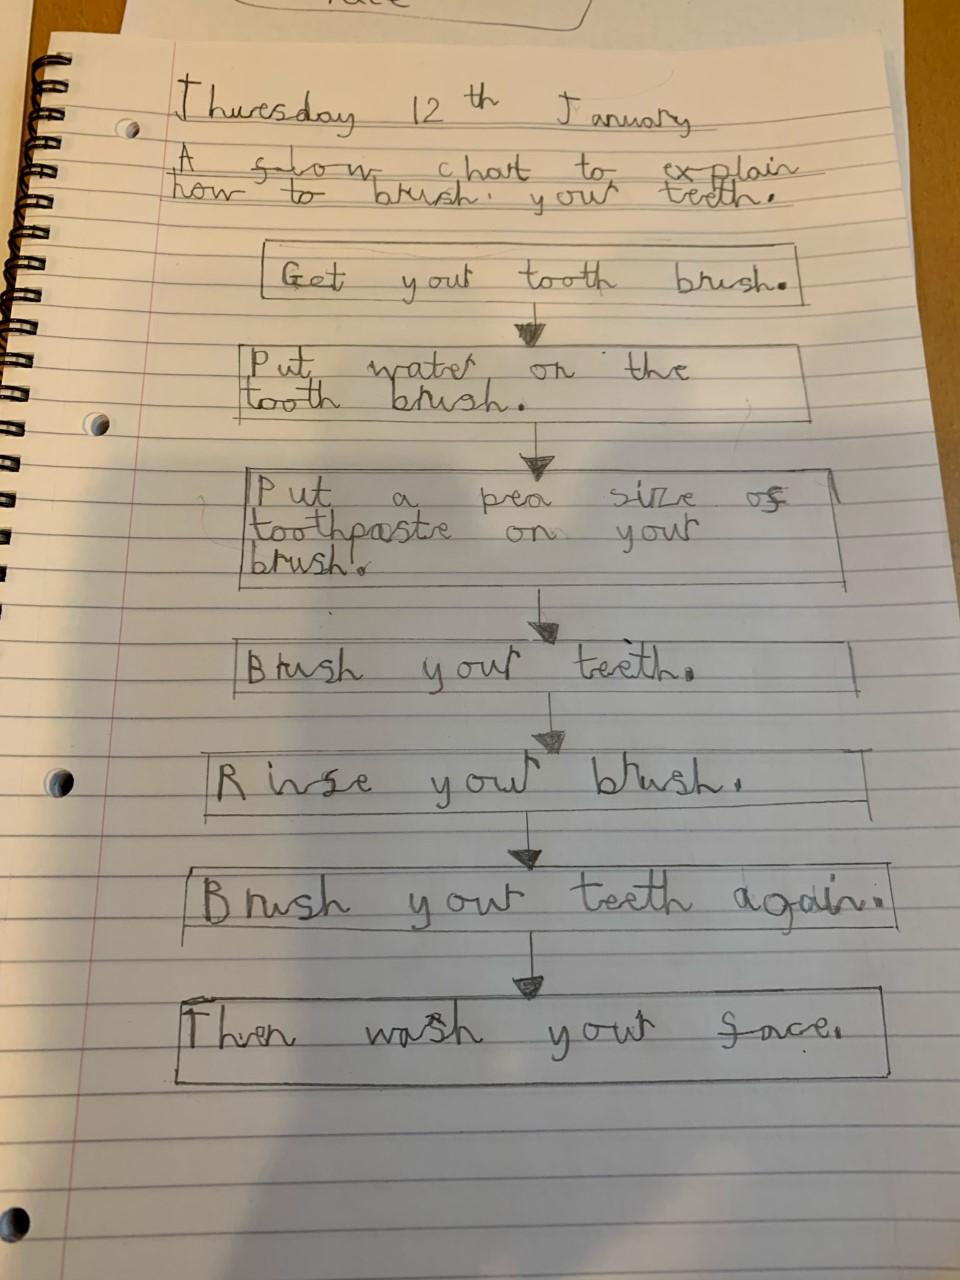 Thuresday 12th January
A flow chart to explain
how to brush your teeth.
Get your tooth brush.
Put water on the
tooth brush.
Put a pea size of
toothpaste on your
brush.
Brush your teeth.
Rinse your brush.
Brush your teeth again.
Then wash your face.